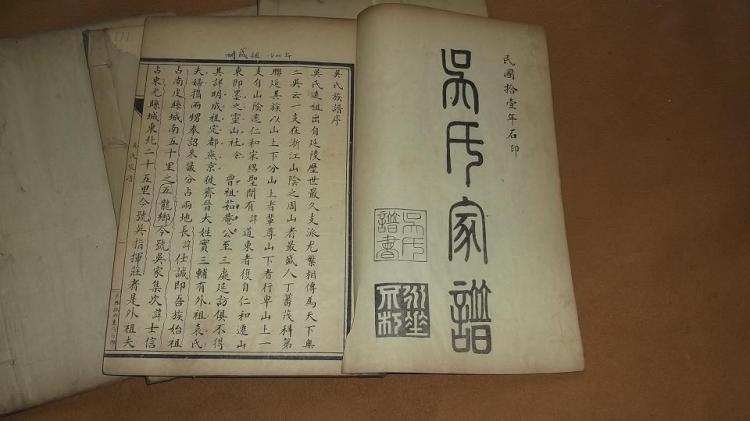 民國拾壹年石印
吳氏家譜
吳氏譜書
永垂不朽
明成祖
吳氏族譜序
吳氏遠祖出自延陵歷世最久支派尤繁相傳為天下無
二吳云一支在浙江山陰之周山者最盛人丁蕃茂科第
聯延其族以山上下分山上者輩尊山下者行卑山上一
支自山陰遷仁和宋紹聖間有諱道東者復自仁和遷山
東即墨之靈山社今 曾祖茹菴公至三處延訪俱不得
其詳明成祖定都燕京徙齊晉大姓實三輔有外祖袁氏
夫婦攜兩甥奉詔來茲分占兩地長諱仕誠即吾族始祖
占南皮縣城南五十里之五龍鄉今號吳家集次諱士信
占東光縣城東北二十五里今號吳指揮莊者是外祖夫